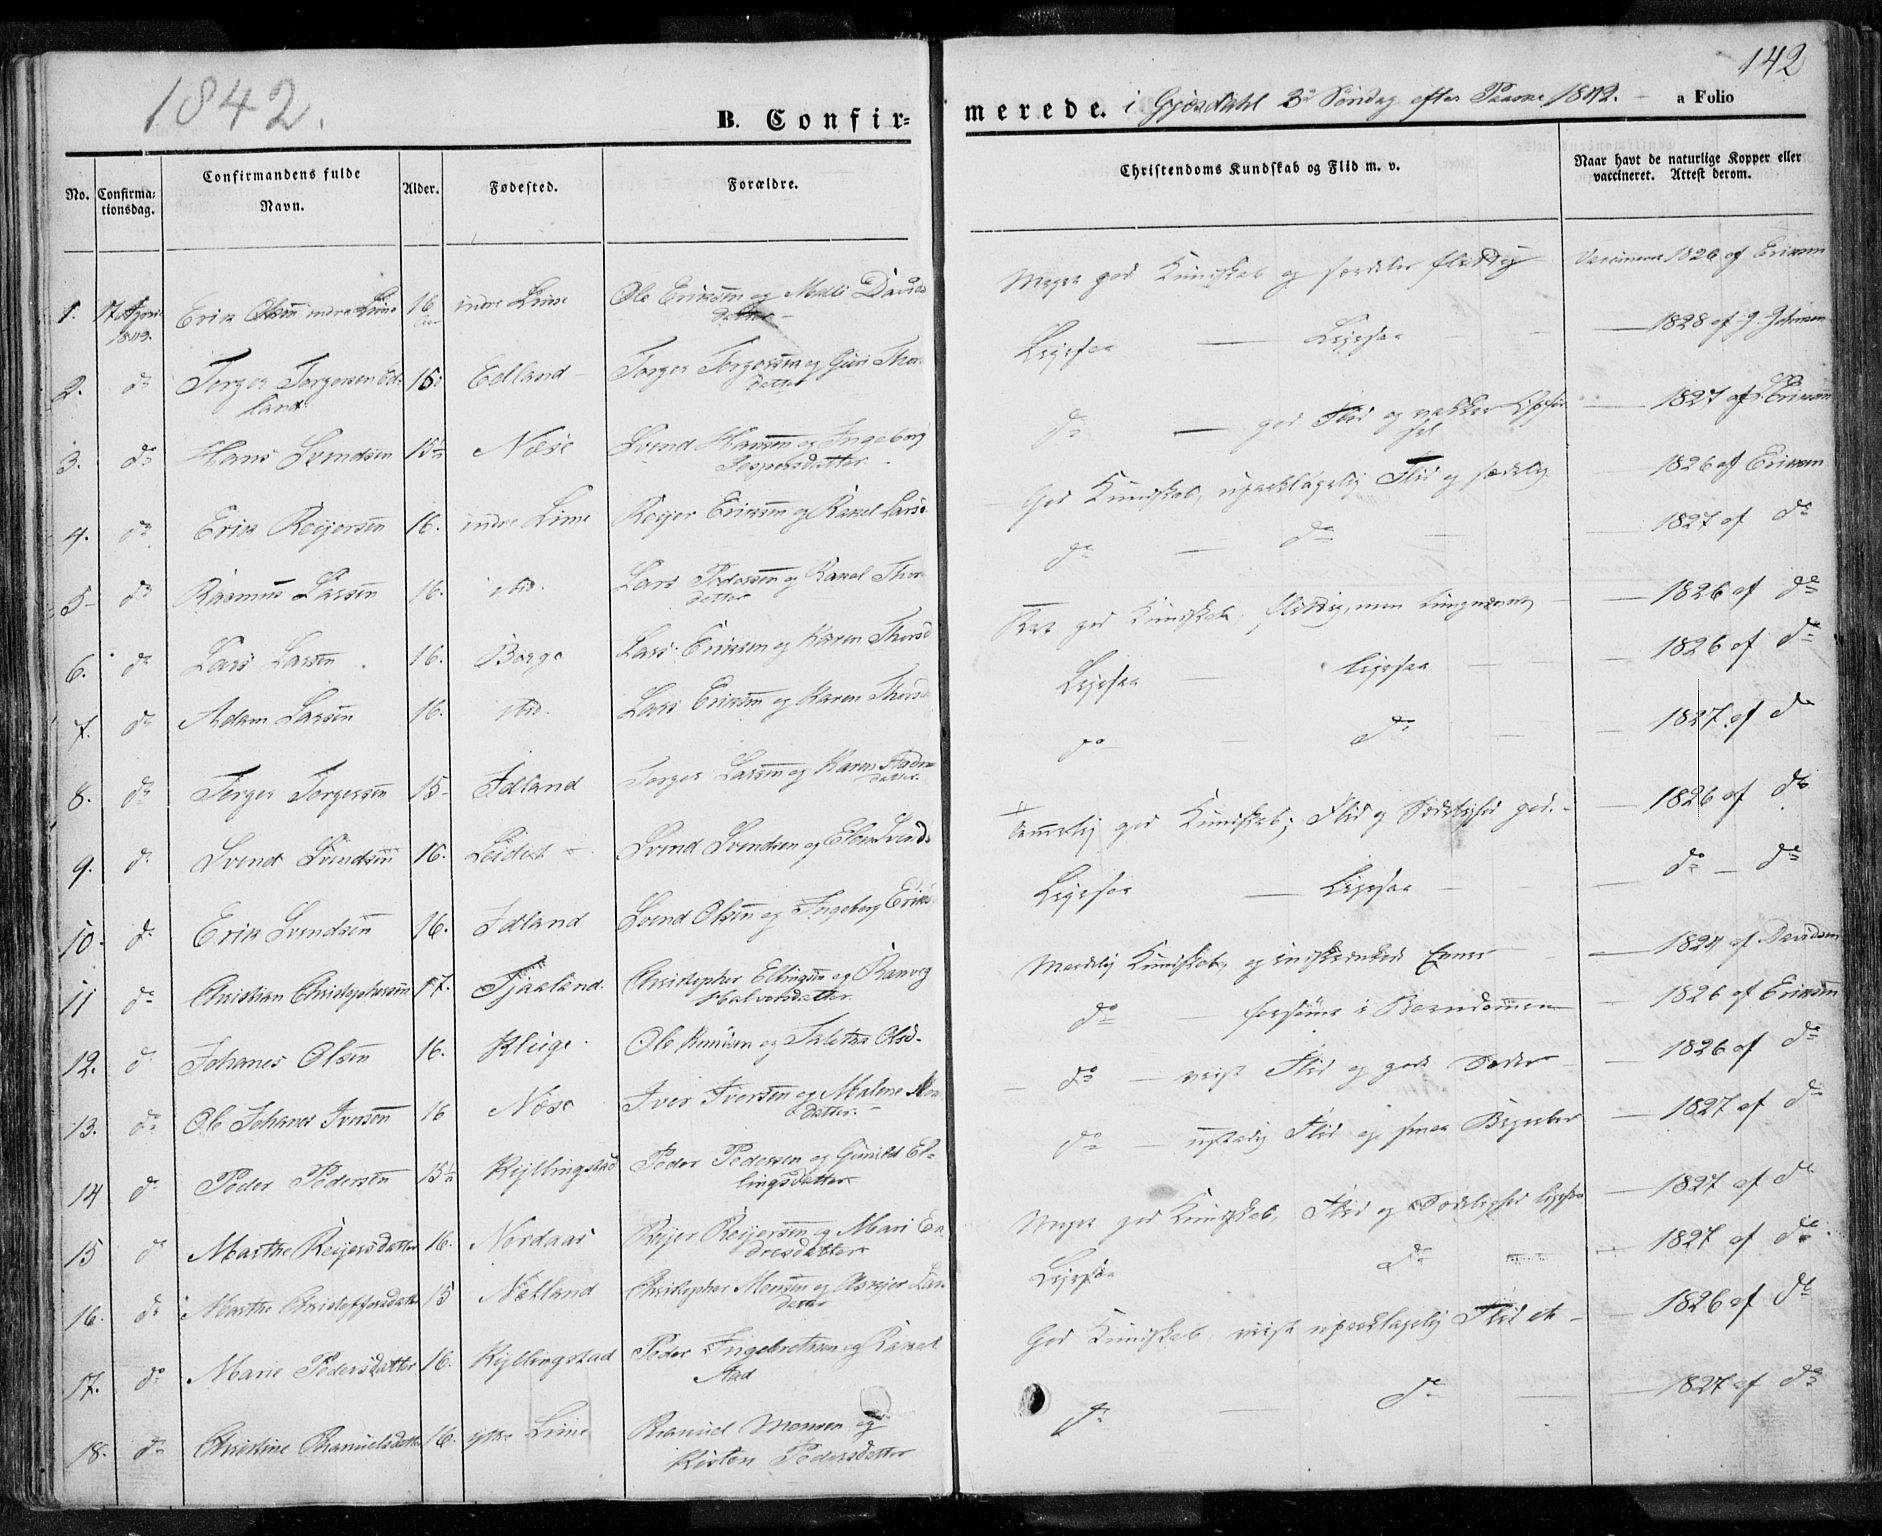 1842.
142
B. Confirmerede. i Gjæsdahl 3de Søndag efter Paaske 1842. a Folio
No. Confirmationsdag. Confirmandens fulde Navn. Alder. Fødested. Forældre. Christendoms Kundskab og Flid m. v. Naar havt de naturlige Kopper eller vaccineret. Attest derom.
1. 17 April 1842. Erik Olsen indre Lime 16 Aar indre Lime Ole Eriksen og Malli Davidsdatter Meget god Kundskab og særdeles flittig Vaccineret 1826 af Eriksen
2. do Torger Torgersen Edland 15 Edland Torger Torgersen og Guri Thordatter Ligesaa — Ligesaa — 1828 af J. Johnsen
3. do Hans Svendsen 15½ Næse Svend Hansen og Ingeborg Jespersdatter do — god Flid og vakker — 1827 af Eriksen
4. do Erik Reijersen 16. indre Lime Reijer Eriksen og Rakel Larsd. God Kundskab, upaaklagelig Flid og sædelig — 1826 af Eriksen
5 do Rasmus Larsen 16. ibid. Lars Pedersen og Rakel Thordatter do — do — 1827 af do
6. do Lars Larsen 16. Borge Lars Eriksen og Karen Thorsd god Kundskab, flittig, men tungnæmet — 1826 af do
7. do Adam Larsen 16. ibid. Lars Eriksen og Karen Thorsd Ligesaa — ligesaa — 1826 af do
8. do Torger Torgersen 15 Idland Torger Larsen og Karen datter do — do — 1827 af do
9. do Svend Svendsen 16. Svend Svendsen og Elen Svends Temmelig god Kundskab; Flid og Sædelighed god. — 1826 af do
10. do Erik Svendsen 16. Idland Svend Olsen og Ingeborg Eriks Ligesaa — Ligesaa — do — do
11 do Christian Christophersen 17. Tjaaland Christopher Ellingsen og Ranveg Halvorsdatter Maadelig Kundskab, og indskrænkede Evner — 1824 af Davidsen
12. do Johanes Olsen 16. Kleige Ole Knudsen og Talitha Olsd. do — forsømt i Barndommen — 1826 af Eriksen
13. do Ole Johanes Iversen 16 Næse Iver Iversen og Malene datter. do — viist Flid og gode Sæder — 1826 af do
14 do Peder Pedersen 15½ Kyllingstad Peder Pedersen og Gunild Ellingsdatter do — ustadig Flid og smaa Begreber — 1827 af do
15 do Marthe Reijersdatter 16. Nordaas Reijer Reijersen og Mari Endresdatter Meget god Kundskab, Flid og Sædelighed ligesaa — 1827 af do
16. do Marthe Christoffersdatter 15 Nætland Christopher Monsen og Asveier Lardatter Ligesaa do — 1827 af do
17. do Marie Pedersdatter 16. Kyllingstad Peder Ingebretsen og Rakel Aad God Kundskab, viist upaaklagelig Flid etc — 1826 af do
18. do Christine Samuelsdatter 16. ytre Lime Samuel Monsen og Kirsten Pedersdatter do — do — 1827 af do